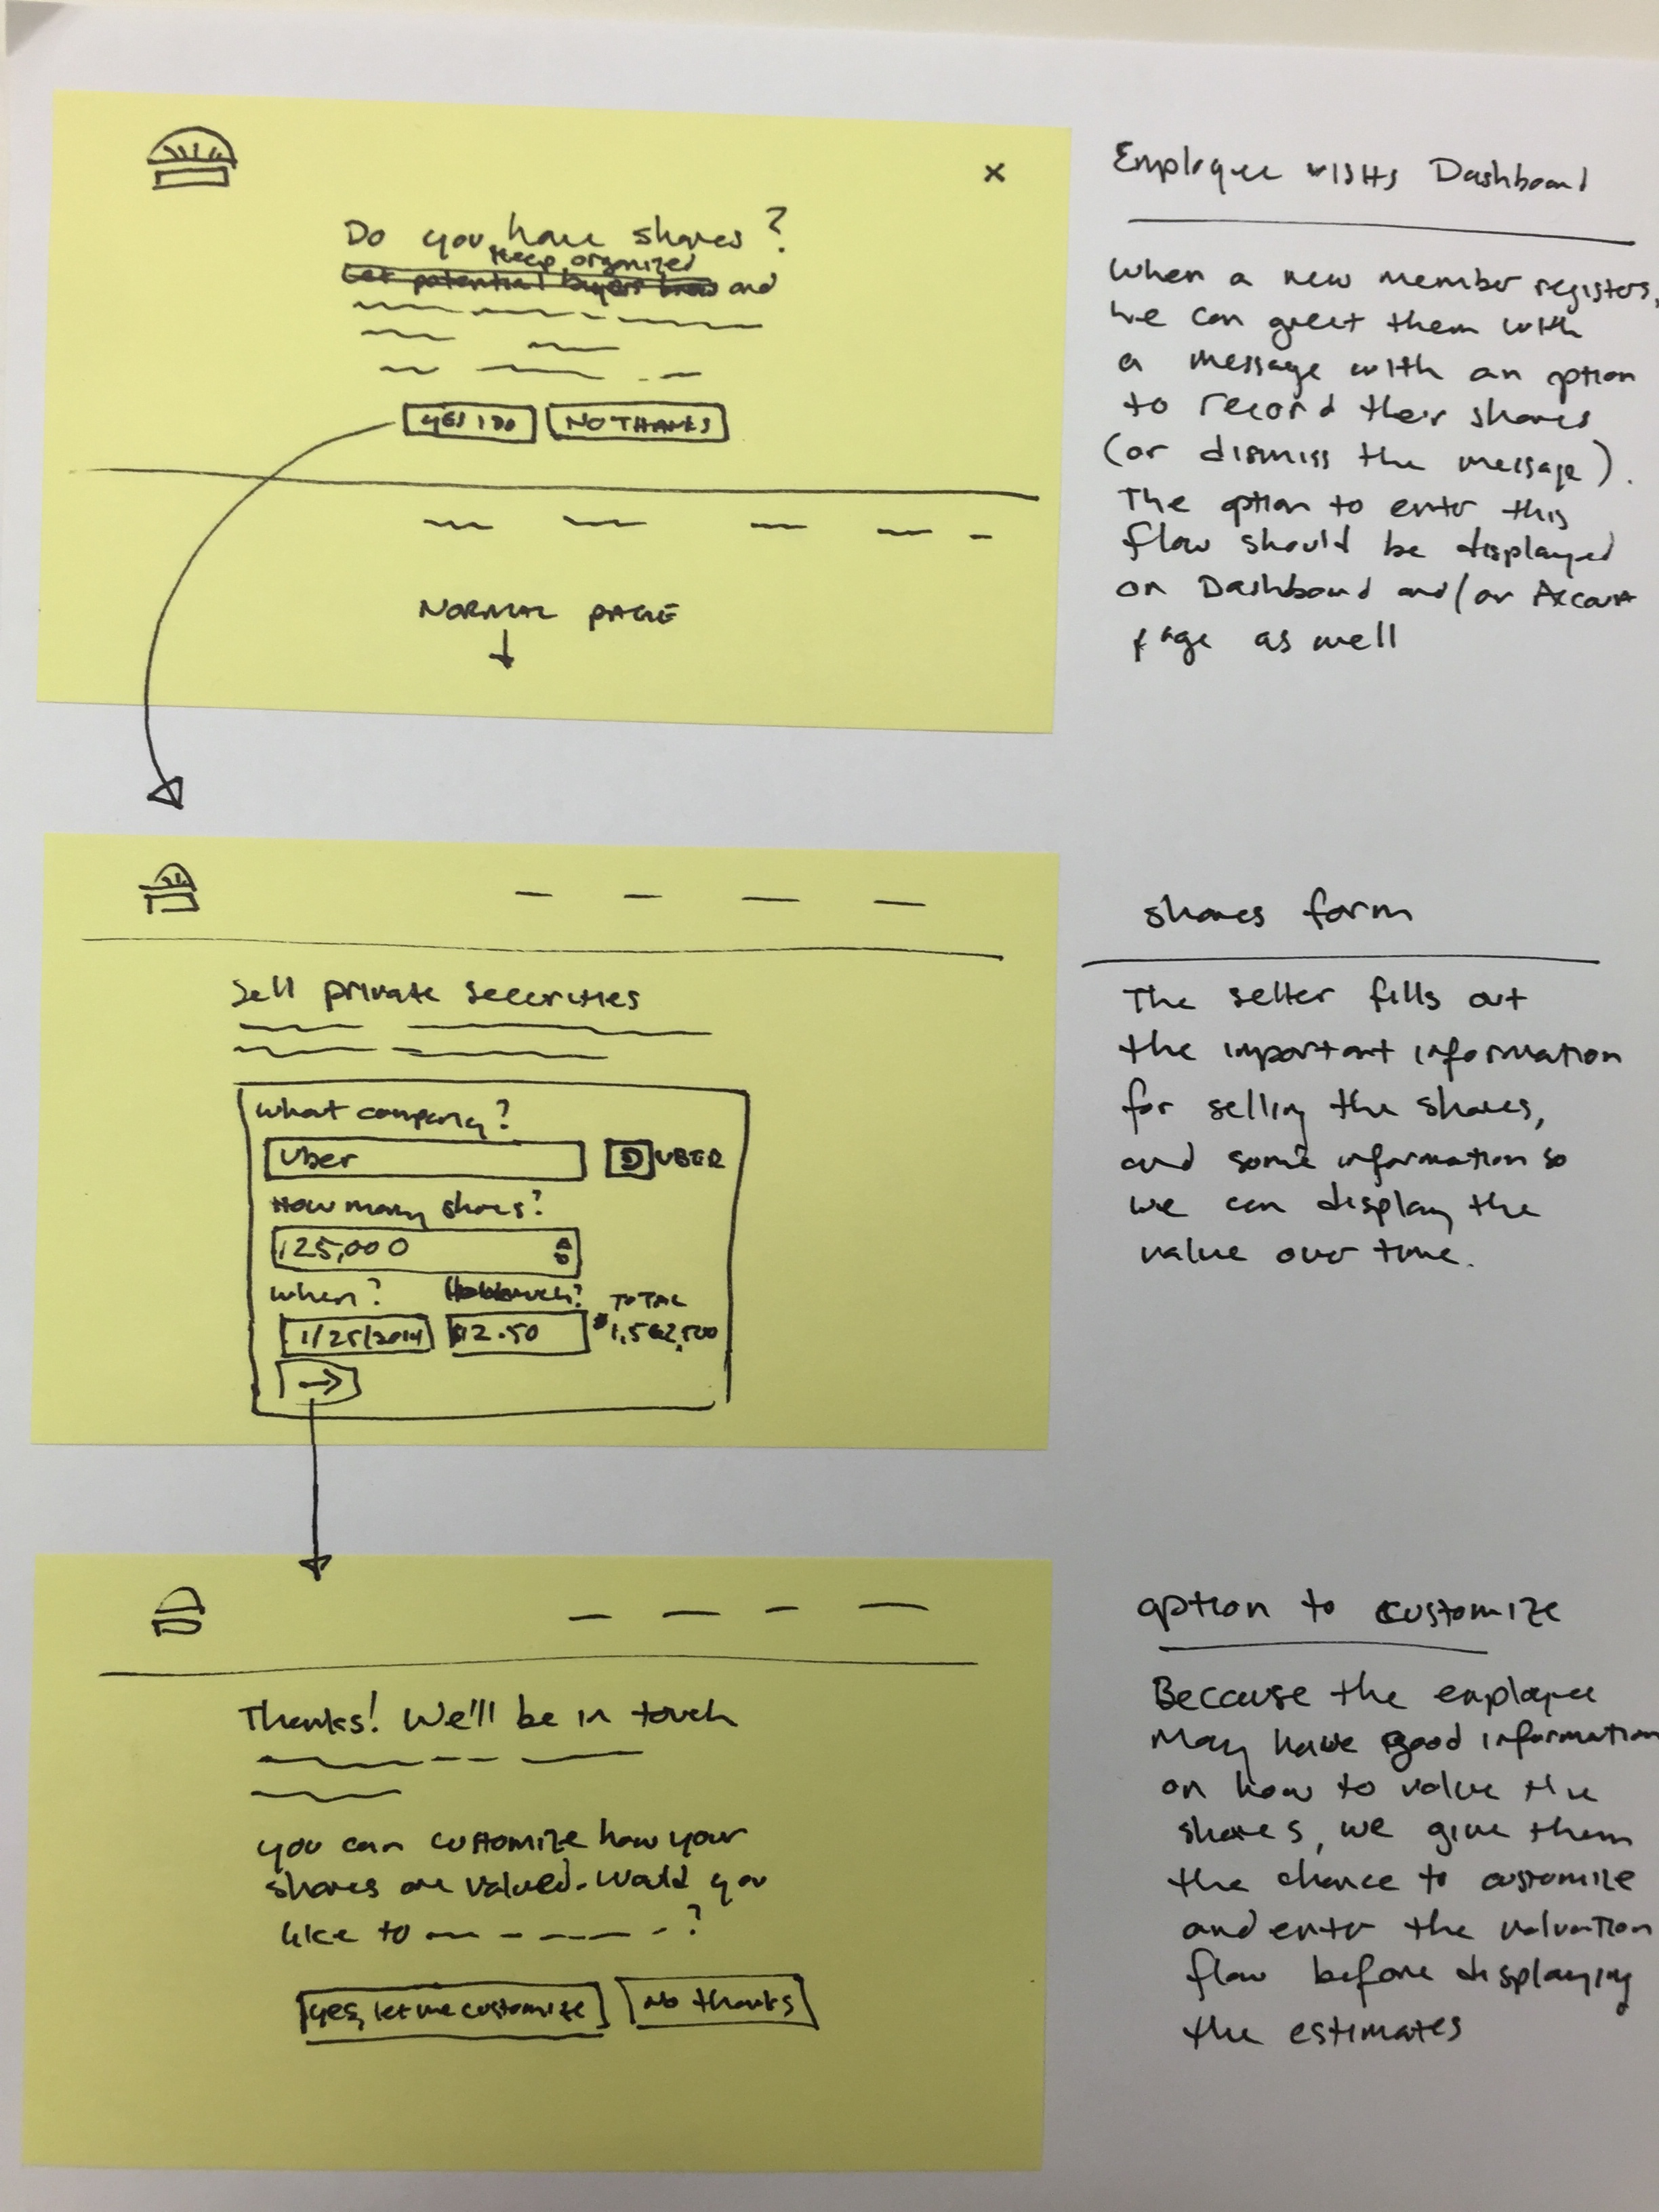 x
Do you have shares?
Keep organized
Let potential buyers know and
YES I DO
NO THANKS
NORMAL PAGE
Employee visits Dashboard
When a new member registers,
we can greet them with
a message with an option
to record their shares
(or dismiss the message).
The option to enter this
flow should be displayed
on Dashboard and/or Account
page as well
Sell private securities
What company?
Uber
UBER
How many shares?
125,000
When?
TOTAL
1/25/2014
$12.50
$1,562,500
shares form
The seller fills out
the important information
for selling the shares,
and some information so
we can display the
value over time.
Thanks! We'll be in touch
you can customize how your
shares are valued. Would you
like to ?
Yes, let me customize
No thanks
option to customize
Because the employee
may have good information
on how to value the
shares, we give them
the chance to customize
and enter the valuation
flow before displaying
the estimates